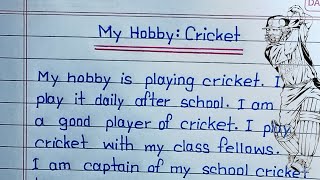 DA
My Hobby: Cricket
My hobby is playing cricket. I
play it daily after school. I am
a good player of cricket. I play
cricket with my class fellows.
I am captain of my school cricket